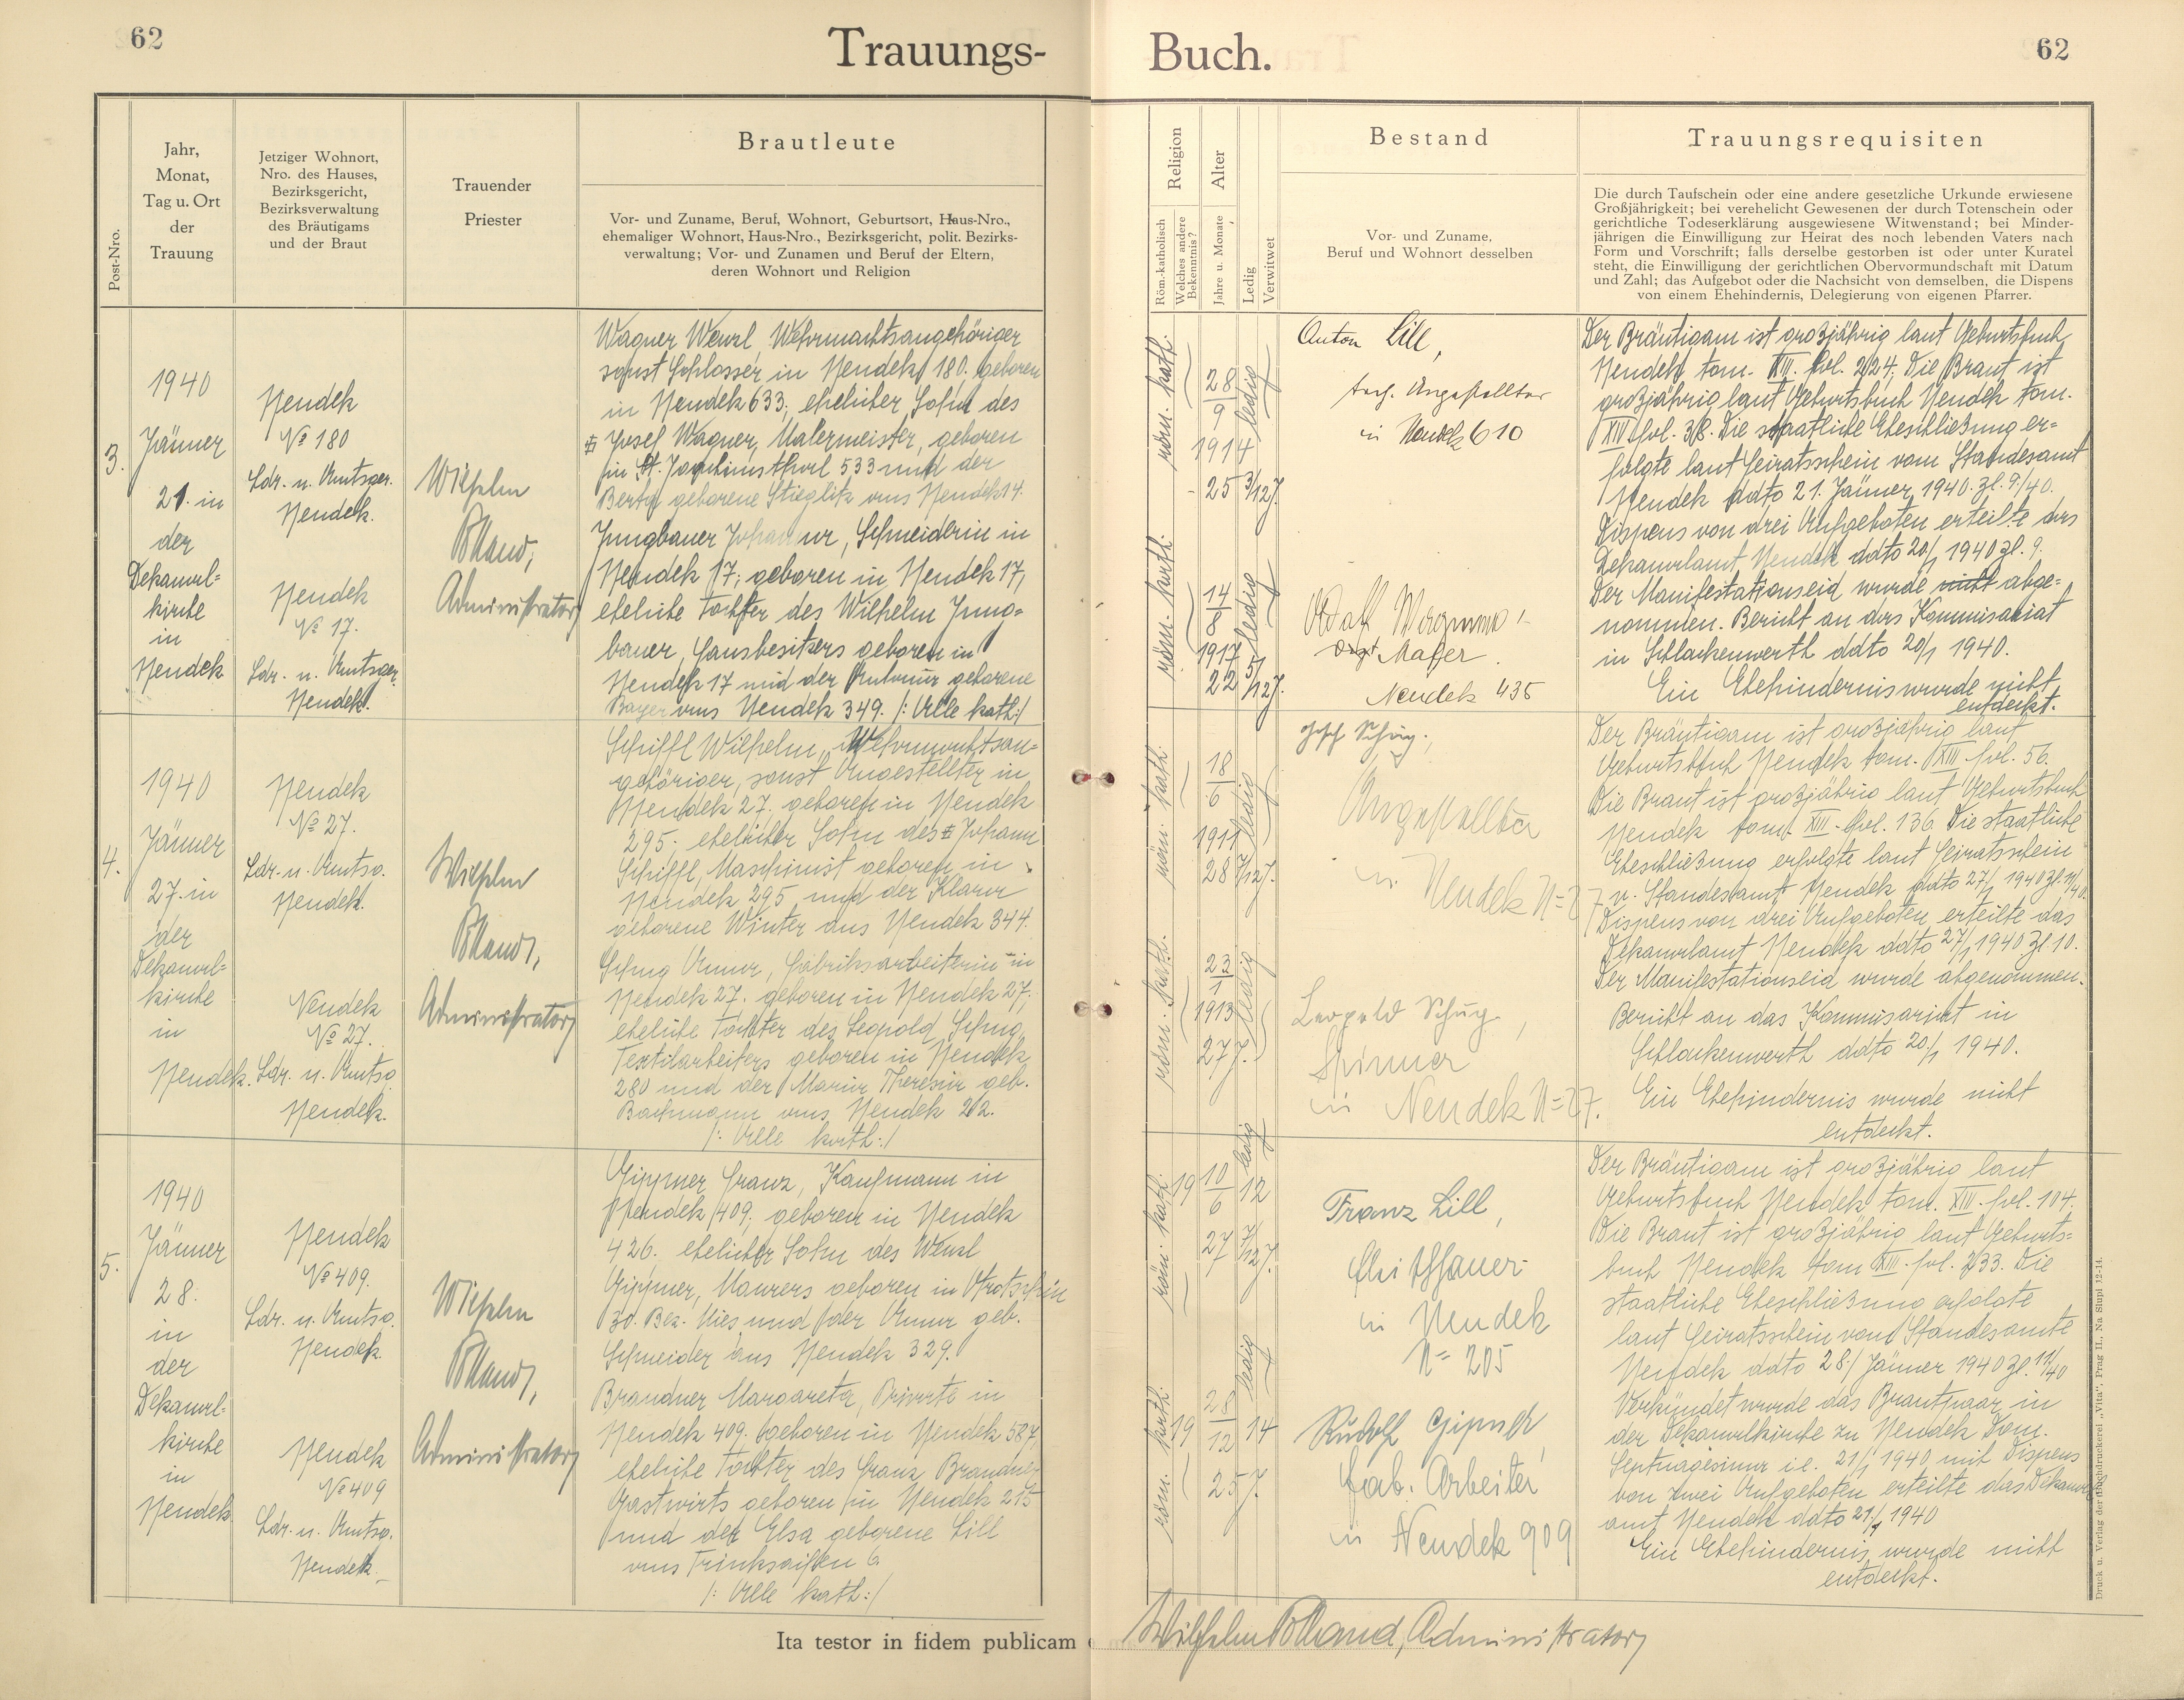 62
Trauungs-
Buch.
62
Post-Nro.
Jahr,
Monat,
Tag u. Ort
der
Trauung
Jetziger Wohnort,
Nro. des Hauses,
Bezirksgericht,
Bezirksverwaltung
des Bräutigams
und der Braut
Trauender
Priester
Brautleute
Vor- und Zuname, Beruf, Wohnort, Geburtsort, Haus-Nro.,
ehemaliger Wohnort, Haus-Nro., Bezirksgericht, polit. Bezirks-
verwaltung; Vor- und Zunamen und Beruf der Eltern,
deren Wohnort und Religion
Religion
Röm.-katholisch
Welches andere
Bekenntnis?
Alter
Jahre u. Monate
Ledig
Verwitwet
Bestand
Vor- und Zuname,
Beruf und Wohnort desselben
Trauungsrequisiten
Die durch Taufschein oder eine andere gesetzliche Urkunde erwiesene
Großjährigkeit; bei verehelicht Gewesenen der durch Totenschein oder
gerichtliche Todeserklärung ausgewiesene Witwenstand; bei Minder-
jährigen die Einwilligung zur Heirat des noch lebenden Vaters nach
Form und Vorschrift; falls derselbe gestorben ist oder unter Kuratel
steht, die Einwilligung der gerichtlichen Obervormundschaft mit Datum
und Zahl; das Aufgebot oder die Nachsicht von demselben, die Dispens
von einem Ehehindernis, Delegierung von eigenen Pfarrer.
3.
1940
Jänner
21. in
der
Dekanal-
kirche
in
Neudek
Neudek
No 180
Ldr. u. Amtsger.
Neudek.
Neudek
No 17.
Ldr. u. Amtsger.
Neudek.
Wilhelm
Administrator
Wagner Wenzl, Wehrmachtsangehöriger
sonst Schlosser in Neudek 180. geboren
in Neudek 633; ehelicher Sohn des
Josef Wagner, Malermeister, geboren
in St. Joachimsthal 533 und der
Berta geborene Stieglitz aus Neudek 14.
Jungbauer Johanna, Schneiderin in
Neudek 17; geboren in Neudek 17,
eheliche Tochter des Wilhelm Jung-
bauer, Hausbesitzers geboren in
Neudek 17 und der Antonia geborene
Bayer aus Neudek 349. /: Alle kath:/
röm. kath.
28
9
1914
25 3/12 J.
ledig
röm. kath.
14
8
1917
22 5/12 J.
ledig
Anton Lill,
tech. Angestellter
in Neudek 610
Maler
Neudek 435
Der Bräutigam ist großjährig laut Geburtsbuch
Neudek tom. XIII. fol. 224; Die Braut ist
großjährig laut Geburtsbuch Neudek tom.
XIV fol. 38. Die staatliche Eheschließung er-
folgte laut Heiratsschein vom Standesamt
Neudek ddto 21. Jänner 1940. Zl. 9/40.
Dispens von drei Aufgeboten erteilte das
Dekanalamt Neudek ddto 20/1 1940 Zl. 9.
Der Manifestationseid wurde nicht abge-
nommen. Bericht an das Kommisariat
in Schlackenwerth ddto 20/1 1940.
Ein Ehehindernis wurde nicht
entdeckt.
4.
1940
Jänner
27. in
der
Dekanal-
kirche
in
Neudek.
Neudek
No 27.
Ldr. u. Amtsg.
Neudek.
Neudek
No 27.
Ldr. u. Amtsg
Neudek.
Wilhelm
Administrator
Schiffl Wilhelm, Wehrmachtsan-
gehöriger, sonst Angestellter in
Neudek 27. geboren in Neudek
295; ehelicher Sohn des Johann
Schiffl, Maschinist geboren in
Neudek 295 und der Klara
geborene Winter aus Neudek 344.
Schug Anna, Fabriksarbeiterin in
Neudek 27. geboren in Neudek 27;
eheliche Tochter des Leopold Schug,
Textilarbeiters geboren in Neudek
280 und der Maria Theresia geb.
Bachmann aus Neudek 212.
/: Alle kath:/
röm. kath.
18
6
1911
28 7/12 J.
ledig
röm. kath.
23
1
1913
27 J.
ledig
Josef Schug,
Angestellter
in Neudek N=27
Leopold Schug,
Spinner
in Neudek N=27.
Der Bräutigam ist großjährig laut
Geburtsbuch Neudek tom. XIII fol. 56.
Die Braut ist großjährig laut Geburtsbuch
Neudek tom. XIII. fol. 136. Die staatliche
Eheschließung erfolgte laut Heiratsschein
v. Standesamt Neudek ddto 27/1 1940 Zl. 11/40.
Dispens von drei Aufgeboten erteilte das
Dekanalamt Neudek ddto 27/1 1940 Zl. 10.
Der Manifestationseid wurde abgenommen.
Bericht an das Kommisariat in
Schlackenwerth ddto 20/1 1940.
Ein Ehehindernis wurde nicht
entdeckt.
5.
1940
Jänner
28.
in
der
Dekanal-
kirche
in
Neudek
Neudek
No 409.
Ldr. u. Amtsg.
Neudek
Neudek
No 409
Ldr. u. Amtsg.
Neudek.
Wilhelm
Administrator
Gippner Franz, Kaufmann in
Neudek 409. geboren in Neudek
426. ehelicher Sohn des Wenzl
Gippner, Maurers geboren in
30. Bez. Mies und der Anna geb.
Schneider aus Neudek 329.
Brandner Margareta, Private in
Neudek 409. geboren in Neudek 587,
eheliche Tochter des Franz Brandner
Gastwirts geboren in Neudek 215
und der Elsa geborene Lill
aus Trinksaifen 6.
/: Alle kath:/
röm. kath.
10
6
19 12
27 7/12 J.
ledig
röm. kath
28
12
19 14
25 J.
ledig
Franz Lill,
in Neudek
N= 205
Rudolf
Fab. Arbeiter
in Neudek 909
Der Bräutigam ist großjährig laut
Geburtsbuch Neudek tom. XIII. fol. 104.
Die Braut ist großjährig laut Geburts-
buch Neudek tom XIII. fol. 233. Die
staatliche Eheschließung erfolgte
laut Heiratsschein vom Standesamte
Neudek ddto 28. Jänner 1940 Zl. 11/40
Verkündet wurde das Brautpaar in
der Dekanalkirche zu Neudek Dom.
Septuagesima i.e. 21/1 1940 mit Dispens
von zwei Aufgeboten erteilte das Dekanal
amt Neudek ddto 21/1 1940
Ein Ehehindernis wurde nicht
entdeckt.
Ita testor in fidem publicam
Wilhelm Administrator
Druck u. Verlag der Buchdruckerei „Vita“, Prag II., Na Slupi 12-14.